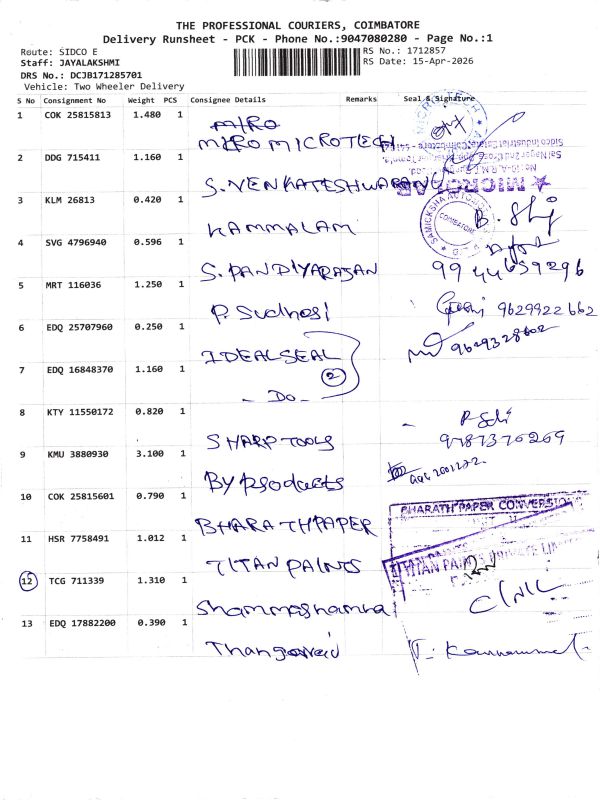 THE PROFESSIONAL COURIERS, COIMBATORE
Delivery Runsheet - PCK - Phone No.:9047080280 - Page No.:1
Route: SIDCO E
RS No.: 1712857
Staff: JAYALAKSHMI
RS Date: 15-Apr-2026
DRS No.: DCJB171285701
Vehicle: Two Wheeler Delivery
S No Consignment No Weight PCS Consignee Details Remarks Seal & Signature
1 COK 25815813 1.480 1
MICRO MICROTECH
2 DDG 715411 1.160 1
S.VENKATESHWARAN
3 KLM 26813 0.420 1
KAMMALAM
4 SVG 4796940 0.596 1
SAMICKSHA
COIMBATORE
S. PANDIYARAJAN 9944659296
5 MRT 116036 1.250 1
P. Sudhosi 9629922662
6 EDQ 25707960 0.250 1
IDEALSEAL 9629328602
7 EDQ 16848370 1.160 1
2
- Do -
8 KTY 11550172 0.820 1
SHARP TOOLS 9787376269
9 KMU 3880930 3.100 1
By Products
10 COK 25815601 0.790 1
BHARATH PAPER CONVERSION
BHARATHPAPER
11 HSR 7758491 1.012 1
TITAN PAINTS PRIVATE LIM
TITAN PAINTS
12 TCG 711339 1.310 1
13 EDQ 17882200 0.390 1